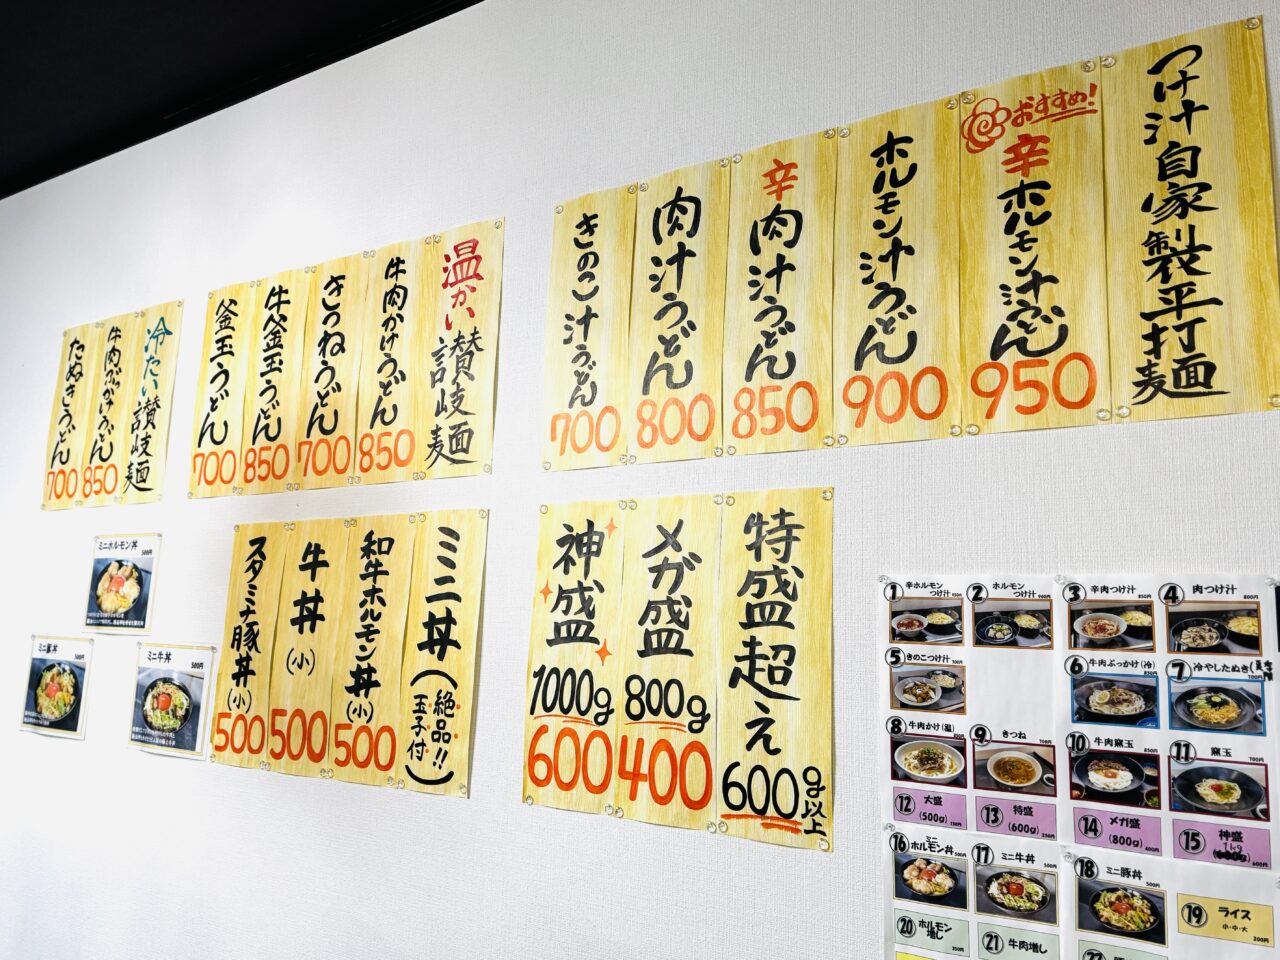 つけ汁自家製平打麺
おすすめ!
辛ホルモン汁うどん
950
ホルモン汁うどん
900
辛肉汁うどん
850
肉汁うどん
800
きのこ汁うどん
700
温かい讃岐麺
牛肉かけうどん
850
きつねうどん
700
牛釜玉うどん
850
釜玉うどん
700
冷たい讃岐麺
牛肉ぶっかけうどん
850
たぬきうどん
700
特盛超え
600g以上
メガ盛
800g
400
神盛
1000g
600
ミニ丼(絶品!!玉子付)
和牛ホルモン丼(小)
500
牛丼(小)
500
スタミナ豚丼(小)
500
ミニホルモン丼
500円
ミニ豚丼
500円
ミニ牛丼
500円
① 辛ホルモンつけ汁 950円
② ホルモンつけ汁 900円
③ 辛肉つけ汁 850円
④ 肉つけ汁 800円
⑤ きのこつけ汁 700円
⑥ 牛肉ぶっかけ(冷) 850円
⑦ 冷やしたぬき
⑧ 牛肉かけ(温) 850円
⑨ きつね 700円
⑩ 牛肉窯玉 850円
⑪ 窯玉 700円
⑫ 大盛(500g) 150円
⑬ 特盛(600g) 250円
⑭ メガ盛(800g) 400円
⑮ 神盛 1kg 600円
⑯ ミニホルモン丼 500円
⑰ ミニ牛丼 500円
⑱ ミニ豚丼 500円
⑲ ライス 小・中・大 200円
⑳ ホルモン増し 350円
㉑ 牛肉増し